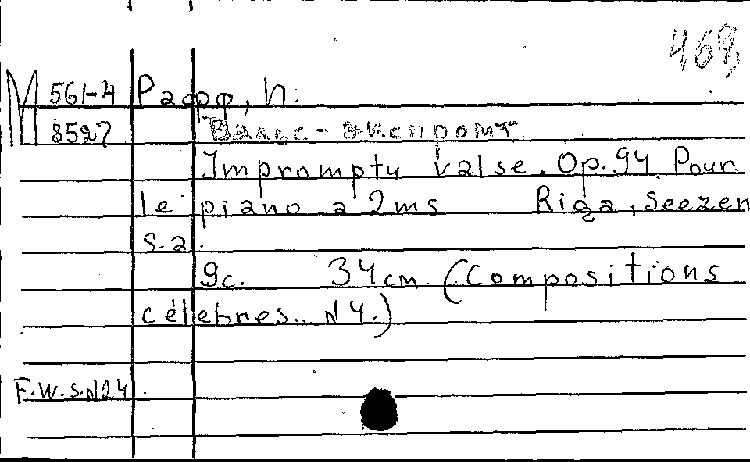 469
М 561-4 Рафф, И.
8527 Вальс-экспромт
Impromptu valse. Op. 94. Pour
le piano a 2ms Riga, Seezen
s.a.
9c. 34cm (Compositions
célebres. N4.)
F.W.S.N24.